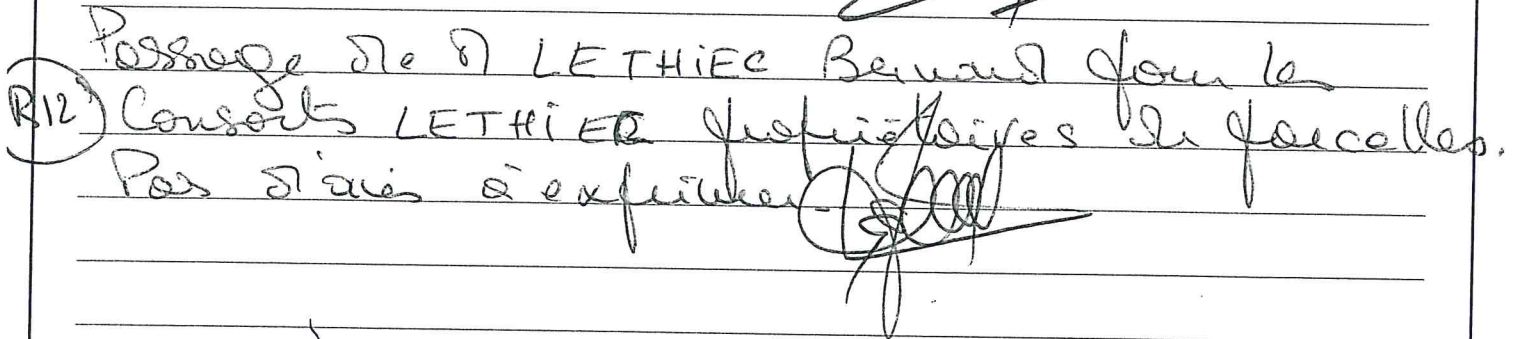 Passage de M LETHIEC Bernard pour les
R12 Consorts LETHIEC propriétaires de parcelles.
Pas d'avis à exprimer.